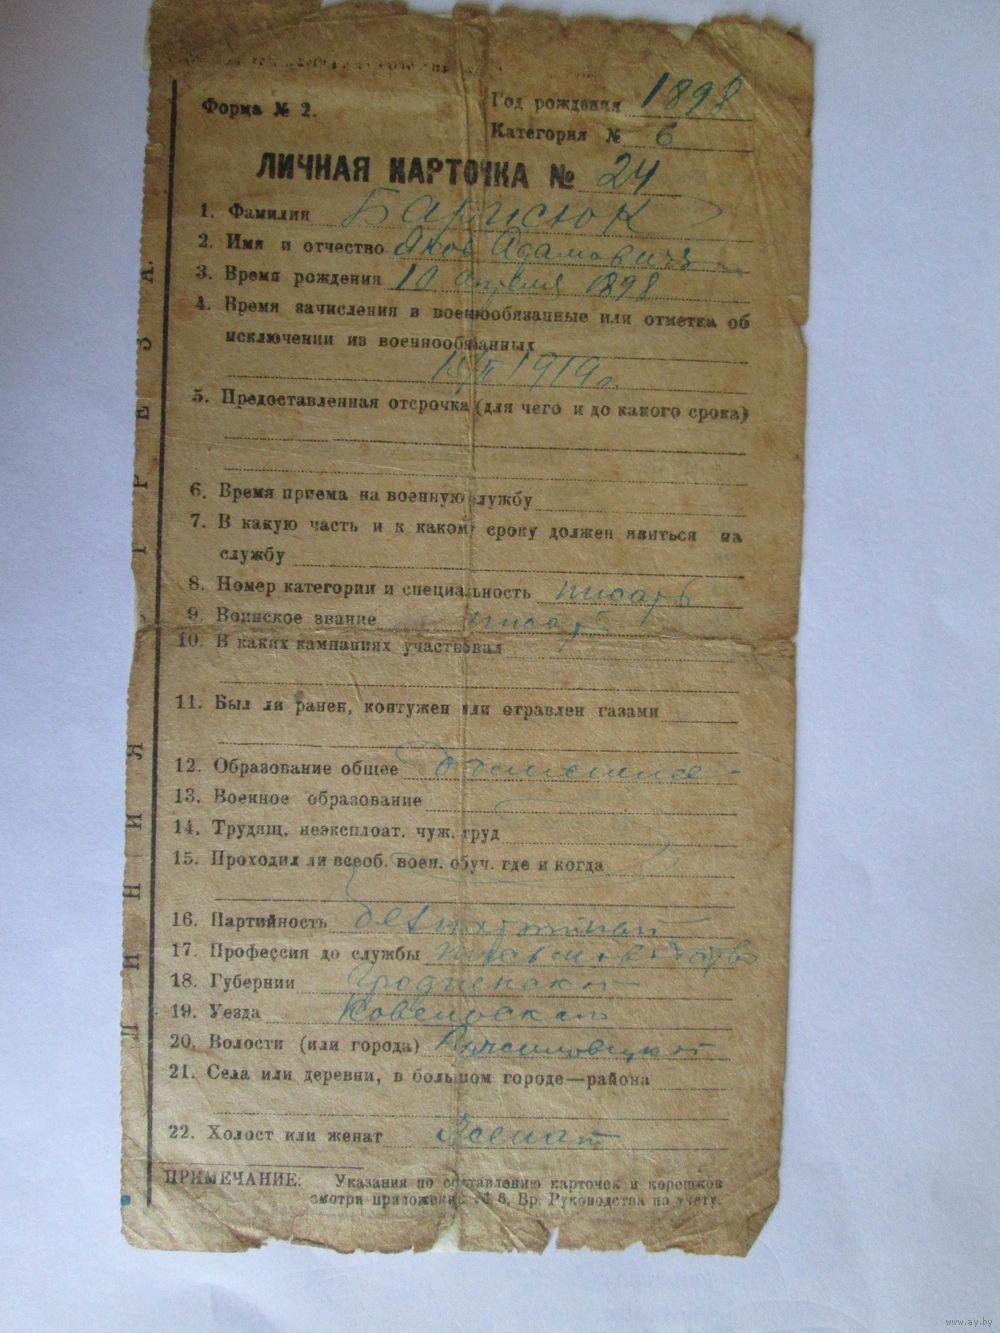 Форма № 2.
Год рождения 1898
Категория № 6
ЛИЧНАЯ КАРТОЧКА № 24
1. Фамилия
2. Имя и отчество Яков Адамович
3. Время рождения 10 апреля 1898
4. Время зачисления в военнообязанные или отметка об
исключении из военнообязанных
15/II 1919 г.
5. Предоставленная отсрочка (для чего и до какого срока)
6. Время приема на военную службу
7. В какую часть и к какому сроку должен явиться на
службу
8. Номер категории и специальность писарь
9. Воинское звание писарь
10. В каких кампаниях участвовал
11. Был ли ранен, контужен или отравлен газами
12. Образование общее домашнее
13. Военное образование
14. Трудящ. неэксплоат. чуж. труд
15. Проходил ли всеоб. воен. обуч. где и когда
16. Партийность беспартийный
17. Профессия до службы письмоводство
18. Губернии Гродненской
19. Уезда
20. Волости (или города)
21. Села или деревни, в большом городе—района
22. Холост или женат Женат
ПРИМЕЧАНИЕ: Указания по составлению карточек и корешков
смотри приложение № 6. Вр. Руководства по учету.
ЛИНИЯ ОТРЕЗА.
www.ay.by